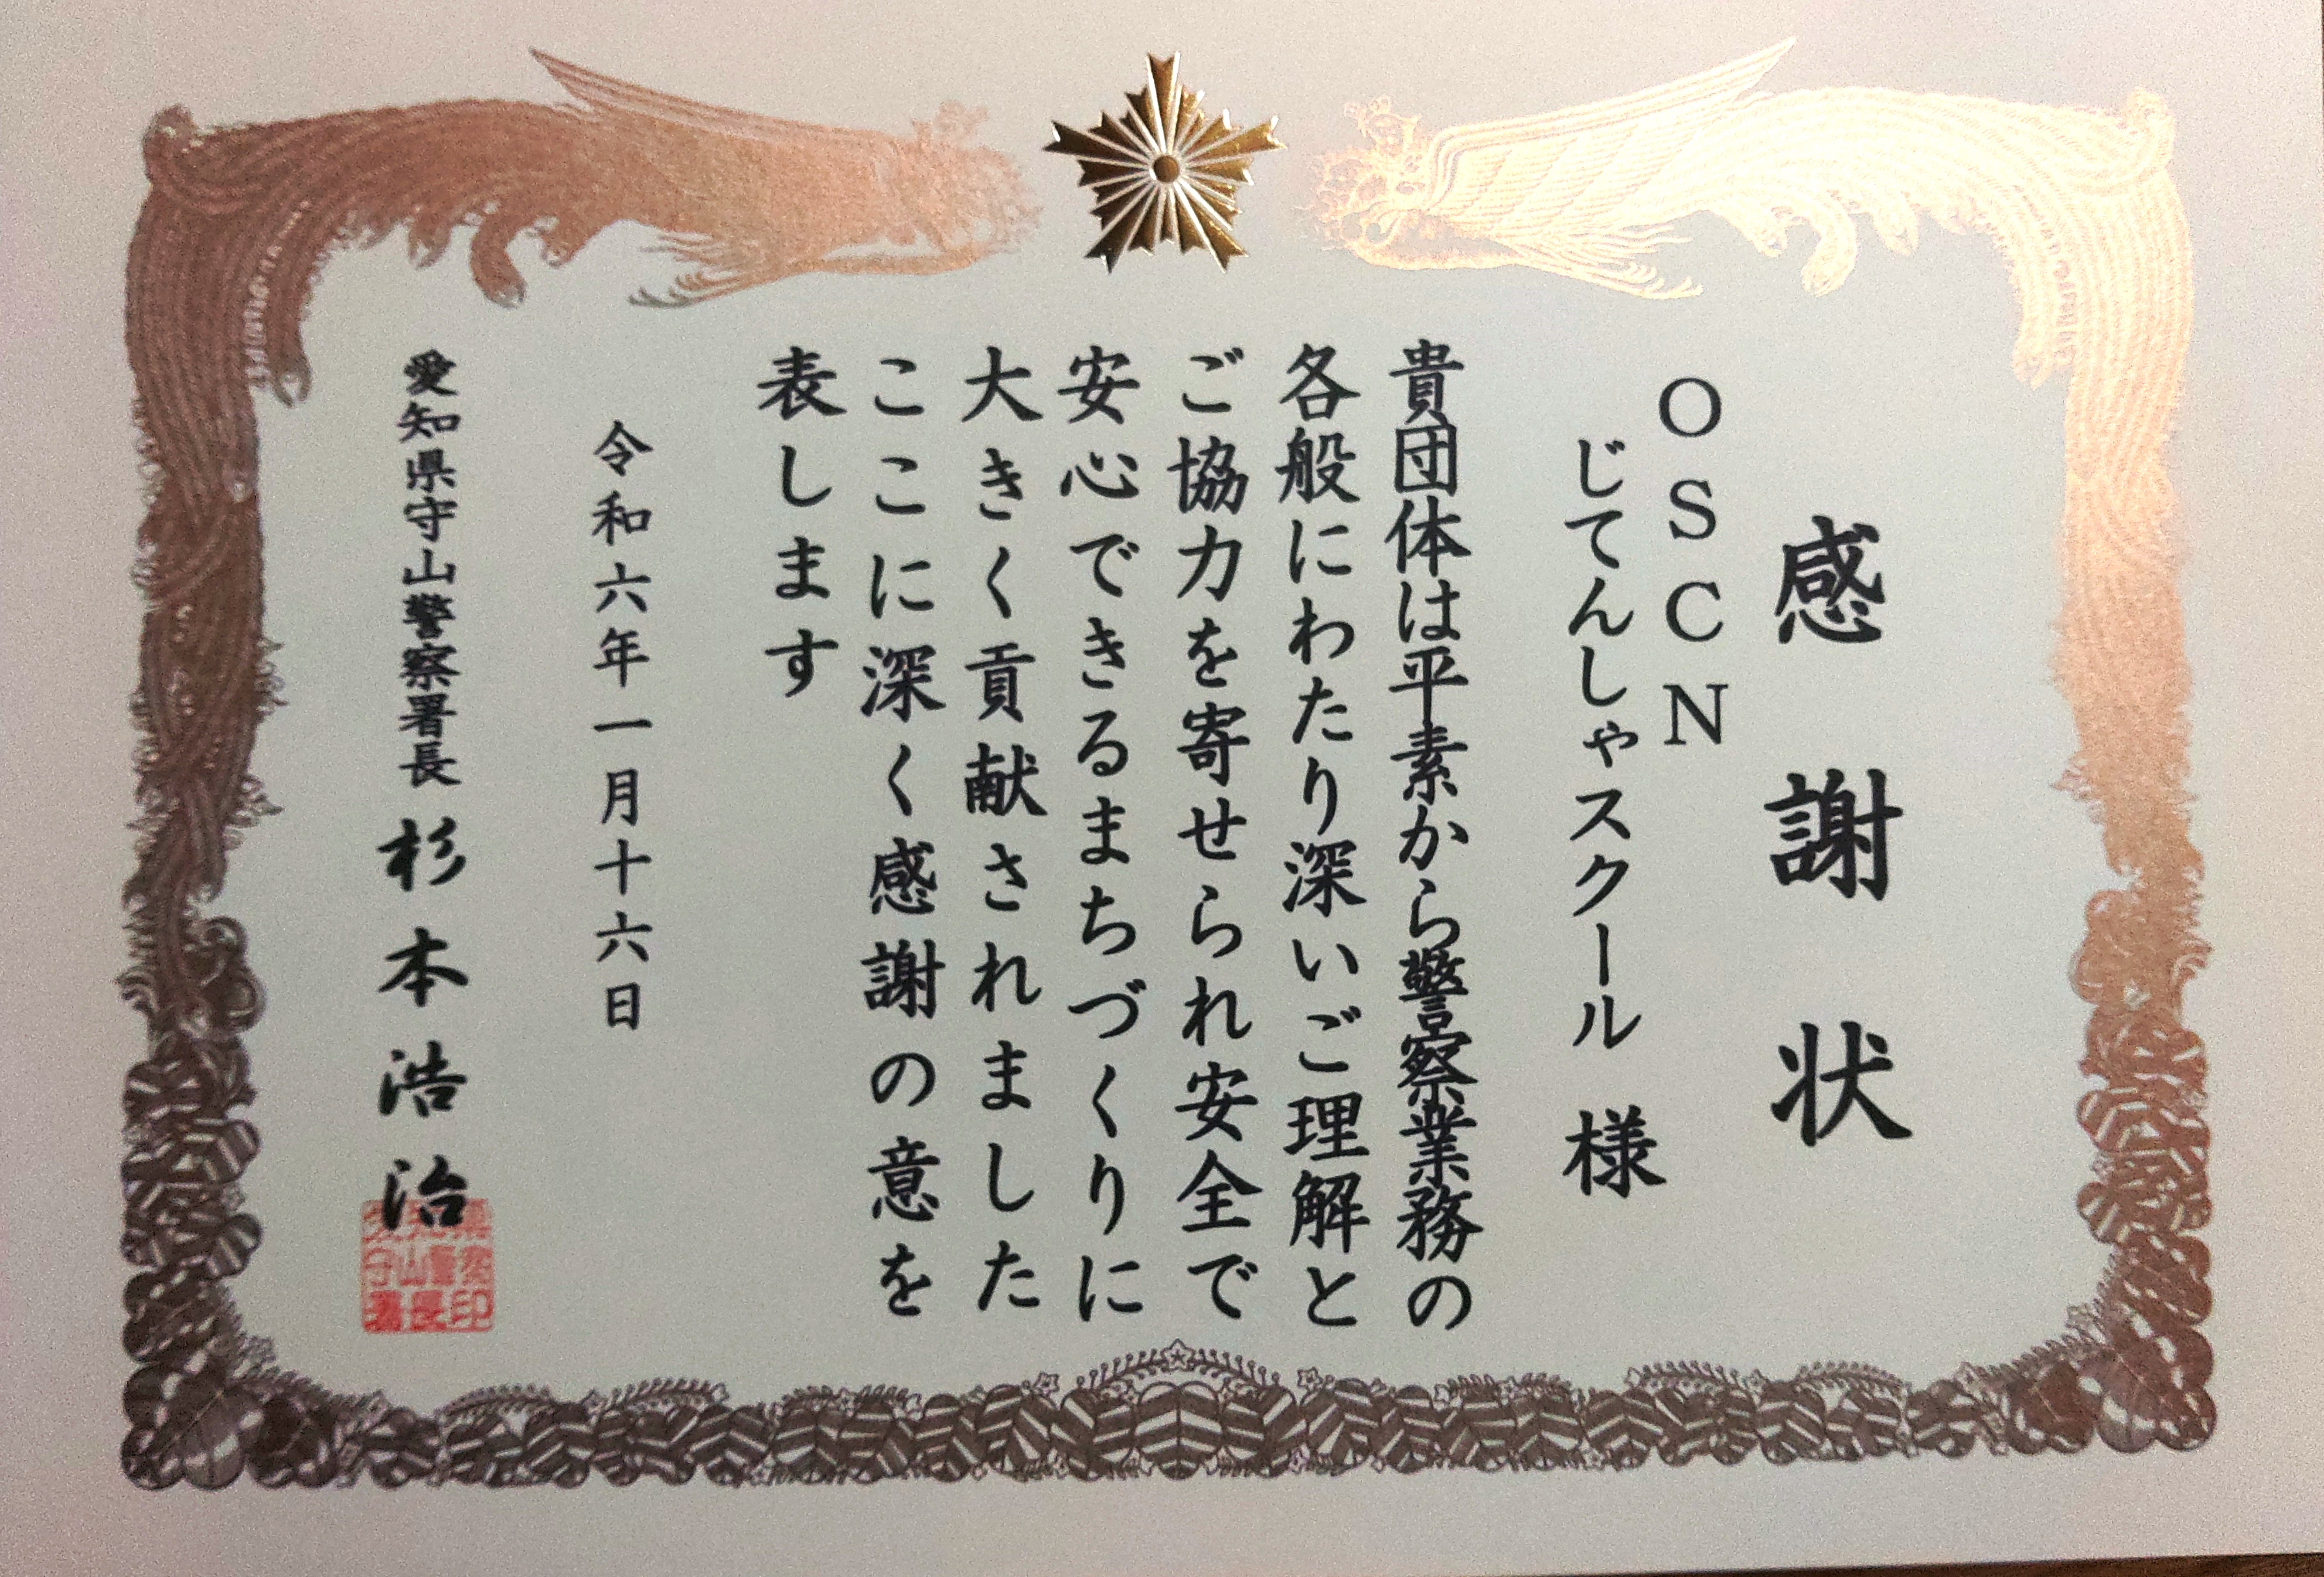 感謝状
OSCN
じてんしゃスクール 様
貴団体は平素から警察業務の
各般にわたり深いご理解と
ご協力を寄せられ安全で
安心できるまちづくりに
大きく貢献されました
ここに深く感謝の意を
表します
令和六年一月十六日
愛知県守山警察署長 杉本浩治